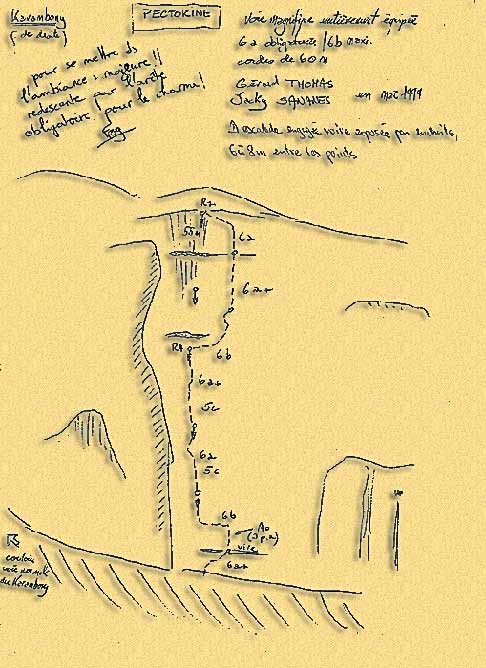 Karambony
(de droite)
PECTORINE
voie magnifique entièrement équipée
6a obligatoire /6b maxi.
cordes de 60m
pour se mettre ds
l'ambiance : majeure !!
redescente par l'arête
obligatoire, pour le charme !
Gérard THOMAS
Jacky SAVANNES en mai
Escalade engagée voire exposée par endroits,
6 à 8m entre les points
R7
55m
6a
6a+
R4
6b
6a+
5c
6a
5c
6b
A0
vire
6a+
couloir
voie normale
du Karambony